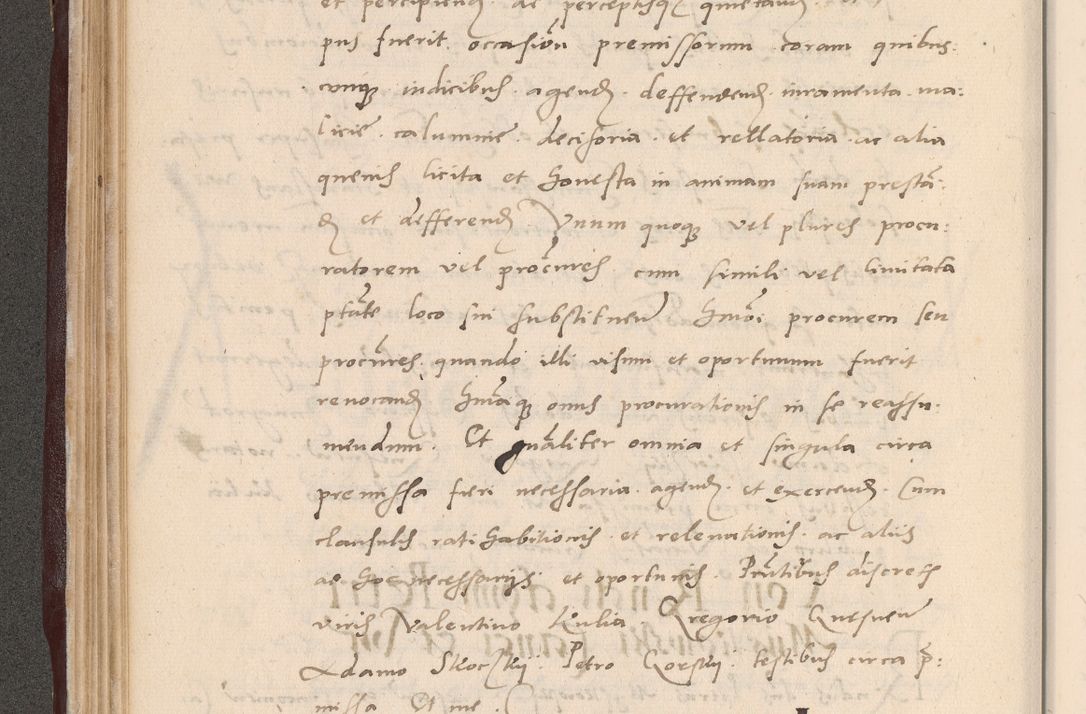 et percipiend de perceptisq quietand
pus fuerit occasion premissorum coram quibus
cunq iudicibus agend deffendend iuramenta ma:
licie calumnie decisoria et rellatoria ac alia
quenis licita et honesta in animam suam prestan
d et defferend Unum quoq vel plures procu:
ratorem vel procures cum simili vel limitata
ptate loco sui substituen Hmoi procurem seu
procures quando illi visum et oportunum fuerit
reuocand onus procurationis in se reassu:
mendum Et gnaliter omnia et singula circa
premissa fieri necessaria agend et exercend Cum
clausulis rati habitionis et releuationis ac aliis
ad hoc necessarijs et oportunis Pntibus discretis
viris Valentino Gregorio
Adamo Petro testibus circa p:
missa Et me